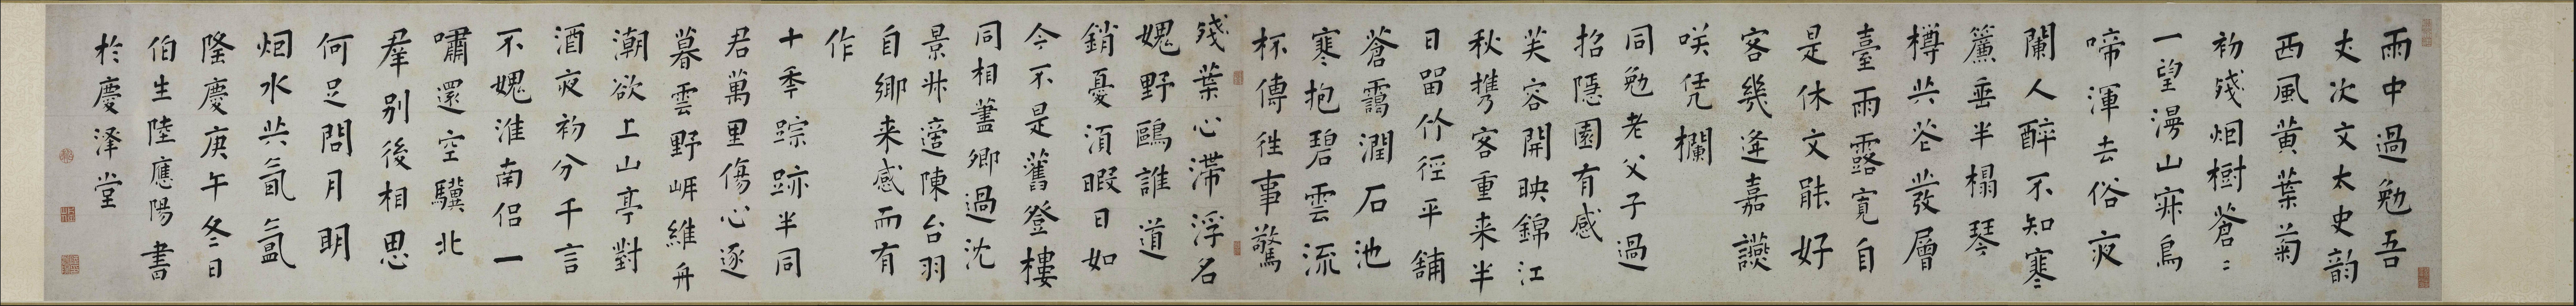 雨中過勉吾
丈次文太史韵
西風黄葉菊
初殘烟樹蒼〻
一望漫山寂鳥
啼渾去俗夜
闌人醉不知寒
簾垂半榻琴
樽共花發層
臺雨露寛自
是休文能好
客幾逢嘉讌
咲凭欄
同勉老父子過
招隱園有感
芙容開映錦江
秋携客重来半
日留竹徑平舖
蒼靄潤石池
寒抱碧雲流
杯傳往事驚
殘葉心滯浮名
媿野鷗誰道
銷憂湏暇日如
今不是舊登樓
同相藎卿過沈
景叔適陳台羽
自鄉来感而有
作
十年踪跡半同
君萬里傷心逐
暮雲野岍維舟
潮欲上山亭對
酒夜初分千言
不媿淮南侣一
嘯還空驥北
羣别後相思
何足問月明
烟水共氤氲
隆慶庚午冬日
伯生陸應陽書
於慶澤堂